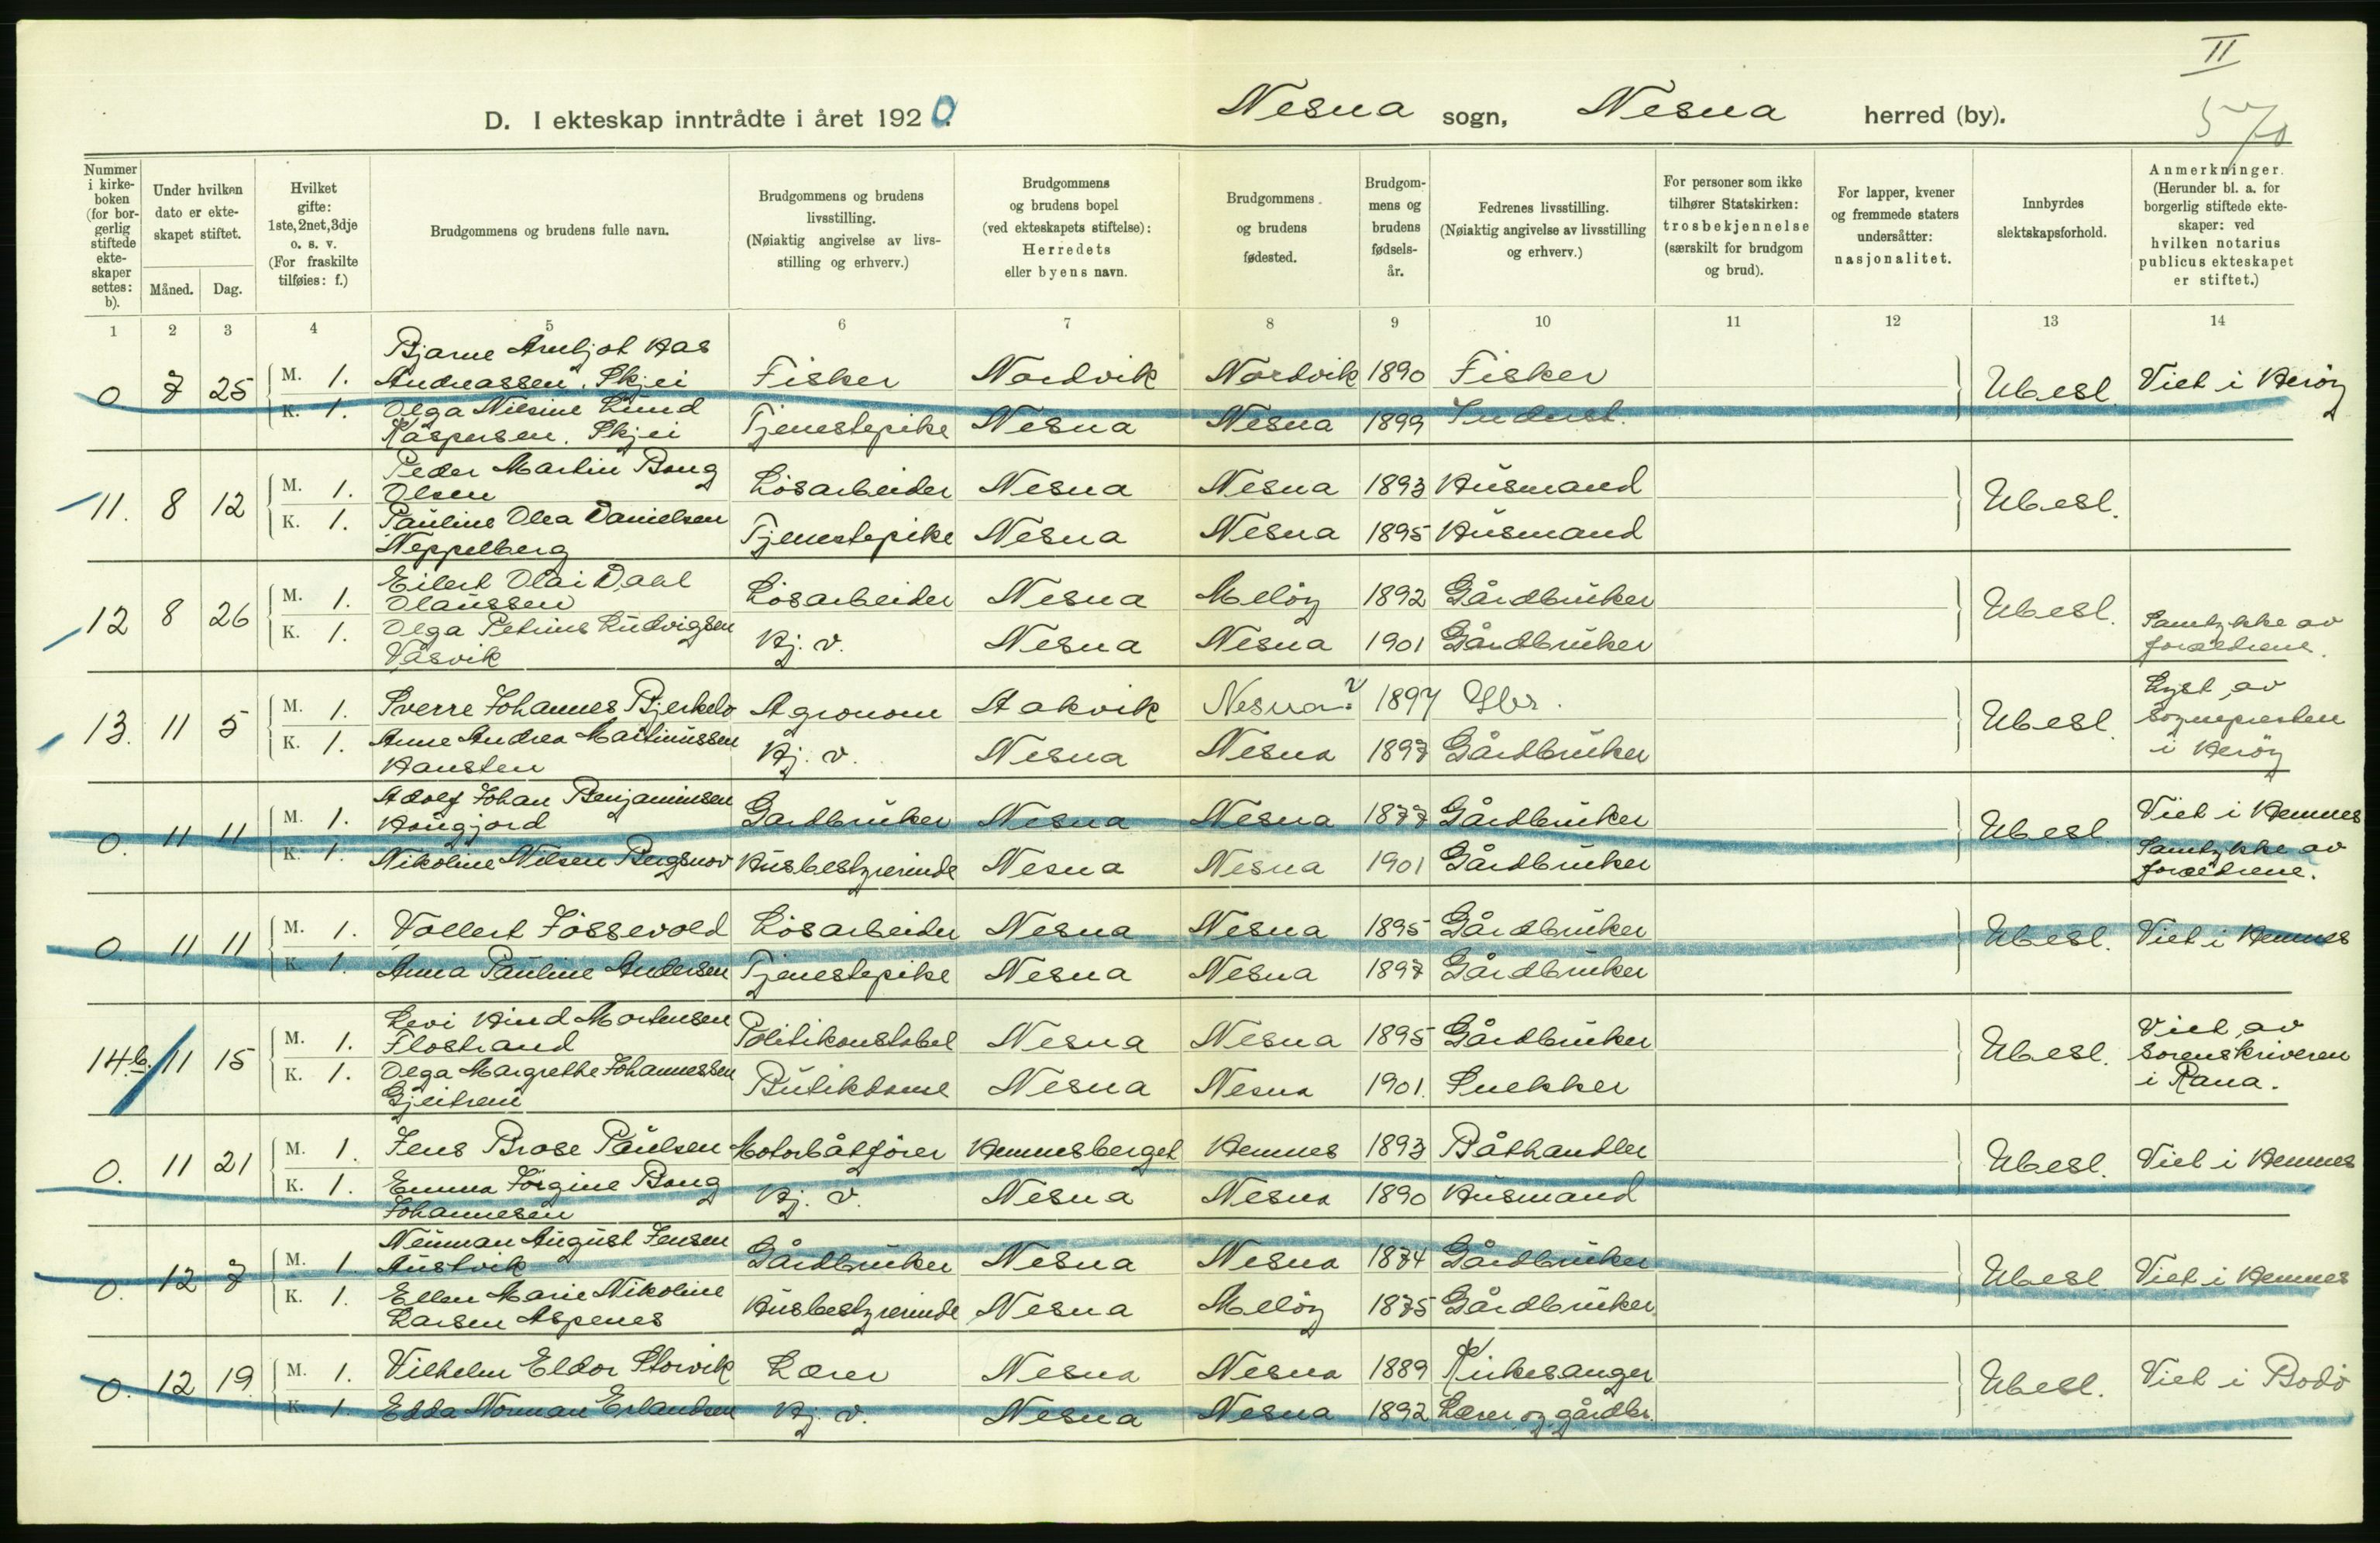 II
D. I ekteskap inntrådte i året 1920. Nesna sogn, Nesna herred (by).
570
Nummer i kirke-boken (for bor-gerlig stiftede ekte-skaper settes: b).
Under hvilken dato er ekte-skapet stiftet.
Måned. Dag.
Hvilket gifte: 1ste, 2net, 3dje o. s. v. (For fraskilte tilføies: f.)
Brudgommens og brudens fulle navn.
Brudgommens og brudens livsstilling. (Nøiaktig angivelse av livs-stilling og erhverv.)
Brudgommens og brudens bopel (ved ekteskapets stiftelse): Herredets eller byens navn.
Brudgommens og brudens fødested.
Brudgom-mens og brudens fødsels-år.
Fedrenes livsstilling. (Nøiaktig angivelse av livsstilling og erhverv.)
For personer som ikke tilhører Statskirken: trosbekjennelse (særskilt for brudgom og brud).
For lapper, kvener og fremmede staters undersåtter: nasjonalitet.
Innbyrdes slektskapsforhold.
Anmerkninger. (Herunder bl. a. for borgerlig stiftede ekte-skaper: ved hvilken notarius publicus ekteskapet er stiftet.)
1 2 3 4 5 6 7 8 9 10 11 12 13 14
Bjarne Arntjot Aas
0 7 25 M. 1. Andreassen, Skjei Fisker Nordvik Nordvik 1890 Fisker Ubesl. Viet i Herøy
K. 1. Olga Nilsine Lund
Kaspersen, Skjei Tjenestepike Nesna Nesna 1899 Inderst.
Peder Martin Bang
11. 8 12 M. 1. Olsen Løsarbeider Nesna Nesna 1893 Husmand Ubesl.
K. 1. Pauline Olea Danielsen
Neppelberg Tjenestepike Nesna Nesna 1895 Husmand
Eilert Olai Dahl
12 8 26 M. 1. Olaussen Løsarbeider Nesna Meløy 1892 Gårdbruker Ubesl. Samtykke av
K. 1. Olga Petrine Ludvigsen
Våsvik Hj. v. Nesna Nesna 1901 Gårdbruker forældrene.
13. 11 5 M. 1. Sverre Johannes Bjerkelo Agronom Aakvik Nesna? 1897 Gbr. Ubesl. Lyst av
sognepresten
K. 1. Anne Andrea Martinussen
Hausten Hj. v. Nesna Nesna 1897 Gårdbruker i Herøy
Adolf Johan Benjaminsen
0. 11 11 M. 1. Haugjord Gardbruker Nesna Nesna 1877 Gårdbruker Ubesl. Viet i Hemnes
K. 1. Nikoline Nilsen Bergsnov Husbestyrerinde Nesna Nesna 1901 Gårdbruker Samtykke av
forældrene.
0. 11 11 M. 1. Vollert Fossevold Løsarbeider Nesna Nesna 1895 Gårdbruker Ubesl. Viet i Hemnes
K. 1. Anna Pauline Andersen Tjenestepike Nesna Nesna 1897 Gårdbruker
Levi Hind Mortensen
14 b. 11 15 M. 1. Flostrand Politikonstabel Nesna Nesna 1895 Gårdbruker Ubesl. Viet av
sorenskriveren
K. 1. Olga Margrethe Johannessen
Gjeitrem Butikdame Nesna Nesna 1901. Snekker i Rana.
0. 11 21 M. 1. Jens Brose Paulsen Motorbåtfører Hemnesberget Hemnes 1893 Båthandler Ubesl. Viet i Hemnes
K. 1. Emma Jørgine Bang
Johannesen Hj. v. Nesna Nesna 1890 Husmand
Neuman August Jensen
0. 12 7 M. 1. Austvik Gårdbruker Nesna Nesna 1874 Gårdbruker Ubesl. Viet i Hemnes
K. 1. Ellen Marie Nikoline
Larsen Aspenes Husbestyrerinde Nesna Meløy 1875 Gårdbruker.
0. 12 19. M. 1. Vilhelm Eldor Storvik Lærer Nesna Nesna 1889 Kirkesanger Ubesl. Viet i Bodø
K. 1. Edda Norman Erlandsen Hj. v. Nesna Nesna 1892 Lærer og gårdbr.